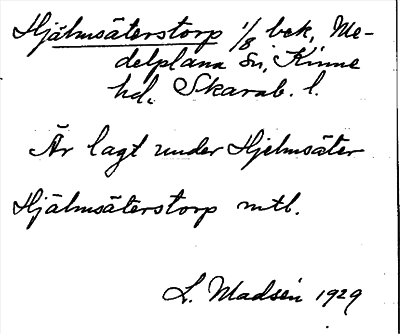 Hjälmsäterstorp 1/8 bek, Me-
delplana sn, Kinne
hd, Skarab. l.
Är lagt under Hjelmsäter
Hjälmsäterstorp mtl.
L. Madsén 1929